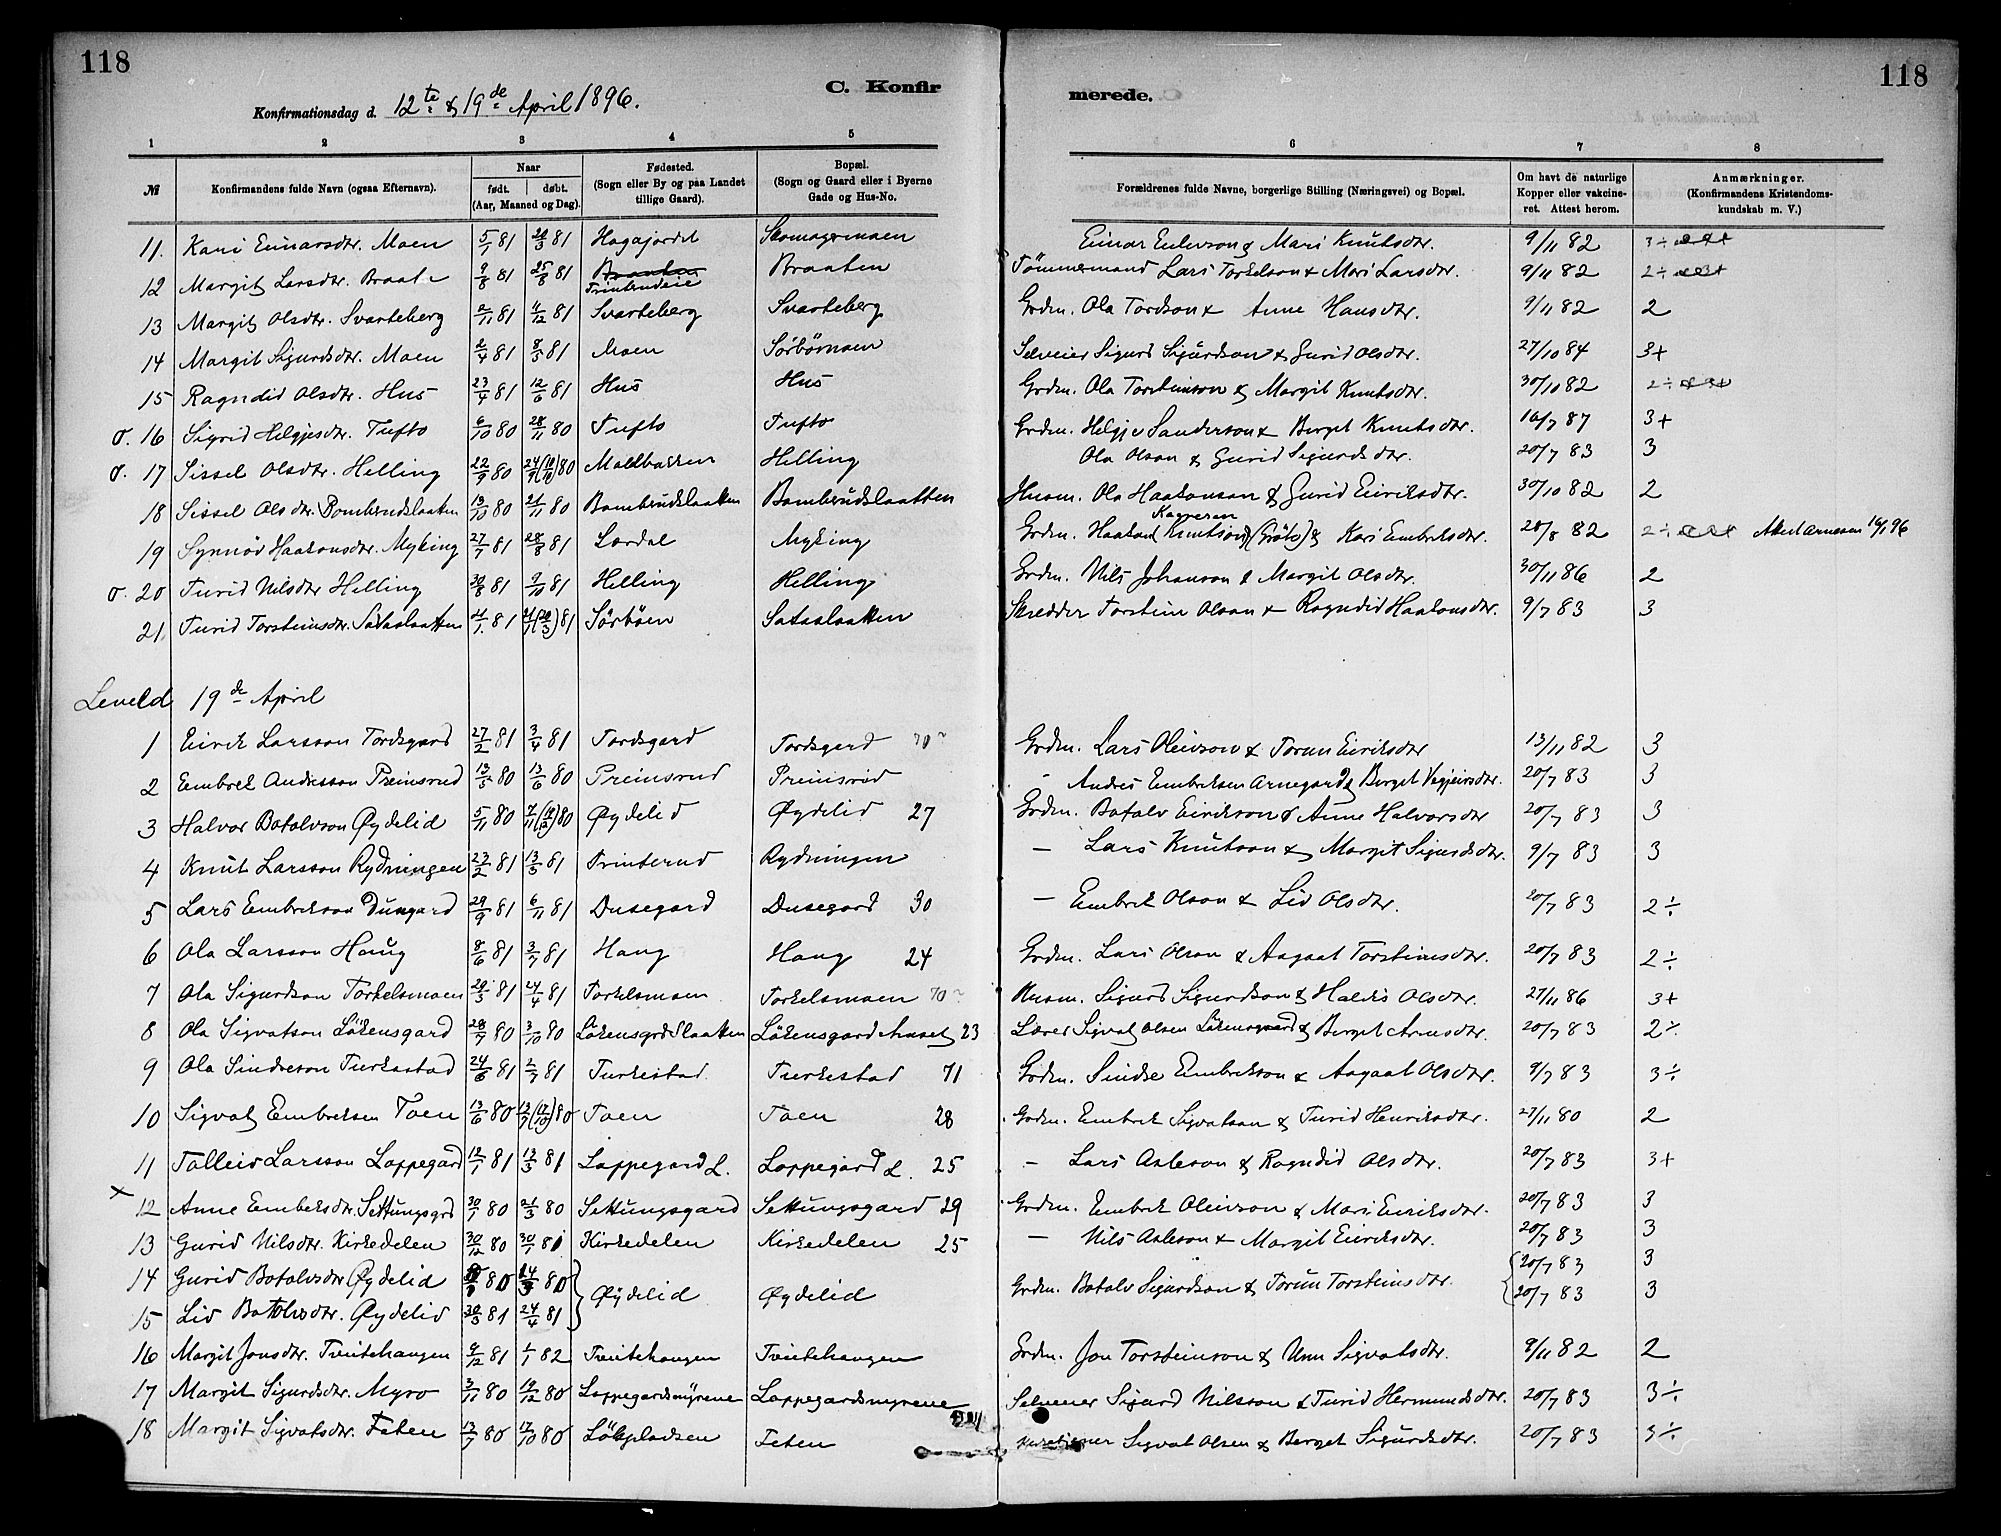 118
118
C. Konfir
merede.
Konfirmationsdag d. 12te & 19de April 1896.
1 2 3 4 5 6 7 8
№ Konfirmandens fulde Navn (ogsaa Efternavn). Naar født. døbt. (Aar, Maaned og Dag). Fødested. (Sogn eller By og paa Landet tillige Gaard). Bopæl. (Sogn og Gaard eller i Byerne Gade og Hus-No. Forældrenes fulde Navne, borgerlige Stilling (Næringsvei) og Bopæl. Om havt de naturlige Kopper eller vakcineret. Attest herom. Anmærkninger. (Konfirmandens Kristendomskundskab m. V.)
11. Kari Einarsdtr. Moen 5/1 81 81 Hagajordet Skomagermoen Einar Mari Knutsdtr. 9/11 82 3÷
12 Margit Larsdtr. Braate 9/8 81 25/8 81 Braaten Braaten Tømmermand Lars Torkelson & Mari Larsdtr. 9/11 82 2÷
13 Margit Olsdtr. Svarteberg 2/11 81 4/12 81 Svarteberg Svarteberg Grdm. Ola Tordson & Anne Hansdtr. 9/11 82 2
14 Margit Sigurdsdtr. Moen 2/4 81 8/5 81 Moen Sørbømoen Selveier Sigurd Sigurdson & Gurid Olsdtr. 27/10 84 3+
15 Ragndid Olsdtr. Hus 23/4 81 12/6 81 Hus Hus Grdm. Ola Torsteinson & Margit Knutsdtr. 30/10 82 2÷
σ. 16 Sigrid Helgjesdtr. Tufto 6/10 80 28/11 80 Tufto Tufto Grdm. Helgje Sanderson & Berget Knutsdtr. 16/7 87 3+
σ. 17 Sissel Olsdtr. Helling 22/9 80 80 Moldbakken Helling Ola Olson & Gurid Sigurdsdtr. 20/7 83 3
18 Sissel Olsdtr. Bomberudslaatten 13/10 80 21/11 80 Bomberudslaatten Bomberudslaatten Husm. Ola Haakonson & Gurid Eiriksdtr. 30/10 82 2
19 Synnøv Haakonsdtr. Myking 27/7 81 28/8 81 Lærdal Myking Grdm. Haakon Knutson (Grøto) & Kari Embriksdtr. 28/8 82 2÷
σ. 20 Turid Nilsdtr Helling 30/8 81 9/10 81 Helling Helling Grdm. Nils Johanson & Margit Olsdtr. 30/11 86 2
21, Turid Torsteinsdtr. Sataslaatten 4/1 81 81 Sørbøen Sataslaatten Skredder Torstein Olson & Ragndid Haakonsdtr. 9/7 83 3
Leveld 19de April
1 Eirik Larsson Tordsgard 27/2 81 3/4 81 Tordsgard Tordsgard Grdm. Lars Oleivson & Torun Eiriksdtr 13/11 82 3
2 Embrek Andresson Preinsrud 13/5 80 13/6 80 Preinsrud Preinsrud - Andres Embriksen Arnegard & Berget Vegjeirsdtr. 20/7 83 3
3 Halvor Botolvson Øydelid 5/11 80 80 Øydelid Øydelid 27 Grdm. Botolv Eirikson & Anne Halvorsdtr 20/7 83 3
4 Knut Larsson Rydningen 23/2 81 13/3 81 Trinterud Rydningen — Lars Knutson & Margit Sigurdsdtr. 9/7 83 3
5 Lars Embrikson Dusegard 29/9 81 6/11 81 Dusegard Dusegard 30 — Embrik Olson & Liv Olsdtr. 20/7 83 2÷
6 Ola Larsson Haug 8/6 81 3/7 81 Haug Haug 24 Grdm. Lars Olson & Aagaat Torsteinsdtr. 20/7 83 2÷
7 Ola Sigurdson Torkelsmoen 29/3 81 24/4 81 Torkelsmoen Torkelsmoen Husm. Sigurd Sigurdson & Haldis Olsdtr. 27/11 86 3+
8 Ola Sigvatson Løkensgard 28/7 80 3/10 80 Løkensgrdslaatten Løkensgardshuset 23 Lærer Sigvat Olsen Løkensgaard & Berget Arnesdtr. 20/7 83 2÷
9 Ola Sindreson Turkestad 24/6 81 81 Turkestad. Turkestad 71 Grdm. Sindre Embrikson & Aagaat Olsdtr. 9/7 83 3÷
10 Sigvat Embriksen Toen 13/6 80 80 Toen Toen 28 Grdm. Embrik Sigvatson & Turid Henriksdtr. 27/11 80 2
11 Talleiv Larsson Loppegard 12/1 81 13/3 81 Loppegard L. Loppegard L. 25 — Lars Asleson & Ragndid Olsdtr. 20/7 83 3+
× 12 Anne Embriksdtr. Settungsgrd 30/1 80 21/3 80 Settungsgard Settungsgard 29 Grdm. Embrik Oleivson & Mari Eiriksdtr. 20/7 83 3
13 Gurid Nilsdtr. Kirkedelen 30/12 80 30/1 81 Kirkedelen Kirkedelen 25 — Nils Asleson & Margit Eiriksdtr. 20/7 83 3
14 Gurid Botolvsdtr Øydelid 80 80 } Øydelid Øydelid Grdm. Botolv Sigurdson & Torun Torsteinsdtr. { 20/7 83 3
15 Liv Botolvsdtr. Øydelid 30/3 81 24/4 81 20/7 83 3
16 Margit Jonsdtr. Tveitehaugen 9/12 81 1/1 82 Tveitehaugen Tveitehaugen Grdm. Jon Torsteinson & Unn Sigvatsdtr. 9/11 82 2
17 Margit Sigurdsdtr. Myro 3/11 80 19/12 80 Loppegardsmyrene Loppegardsmyrene Selveier Sigurd Nilsson & Turid Hermundsdtr. 20/7 83 3÷
18 Margit Sigvatsdtr. Feten 13/7 80 17/10 80 Feten Sigvat Olsen & Berget Sigurdsdtr. 20/7 83 3÷